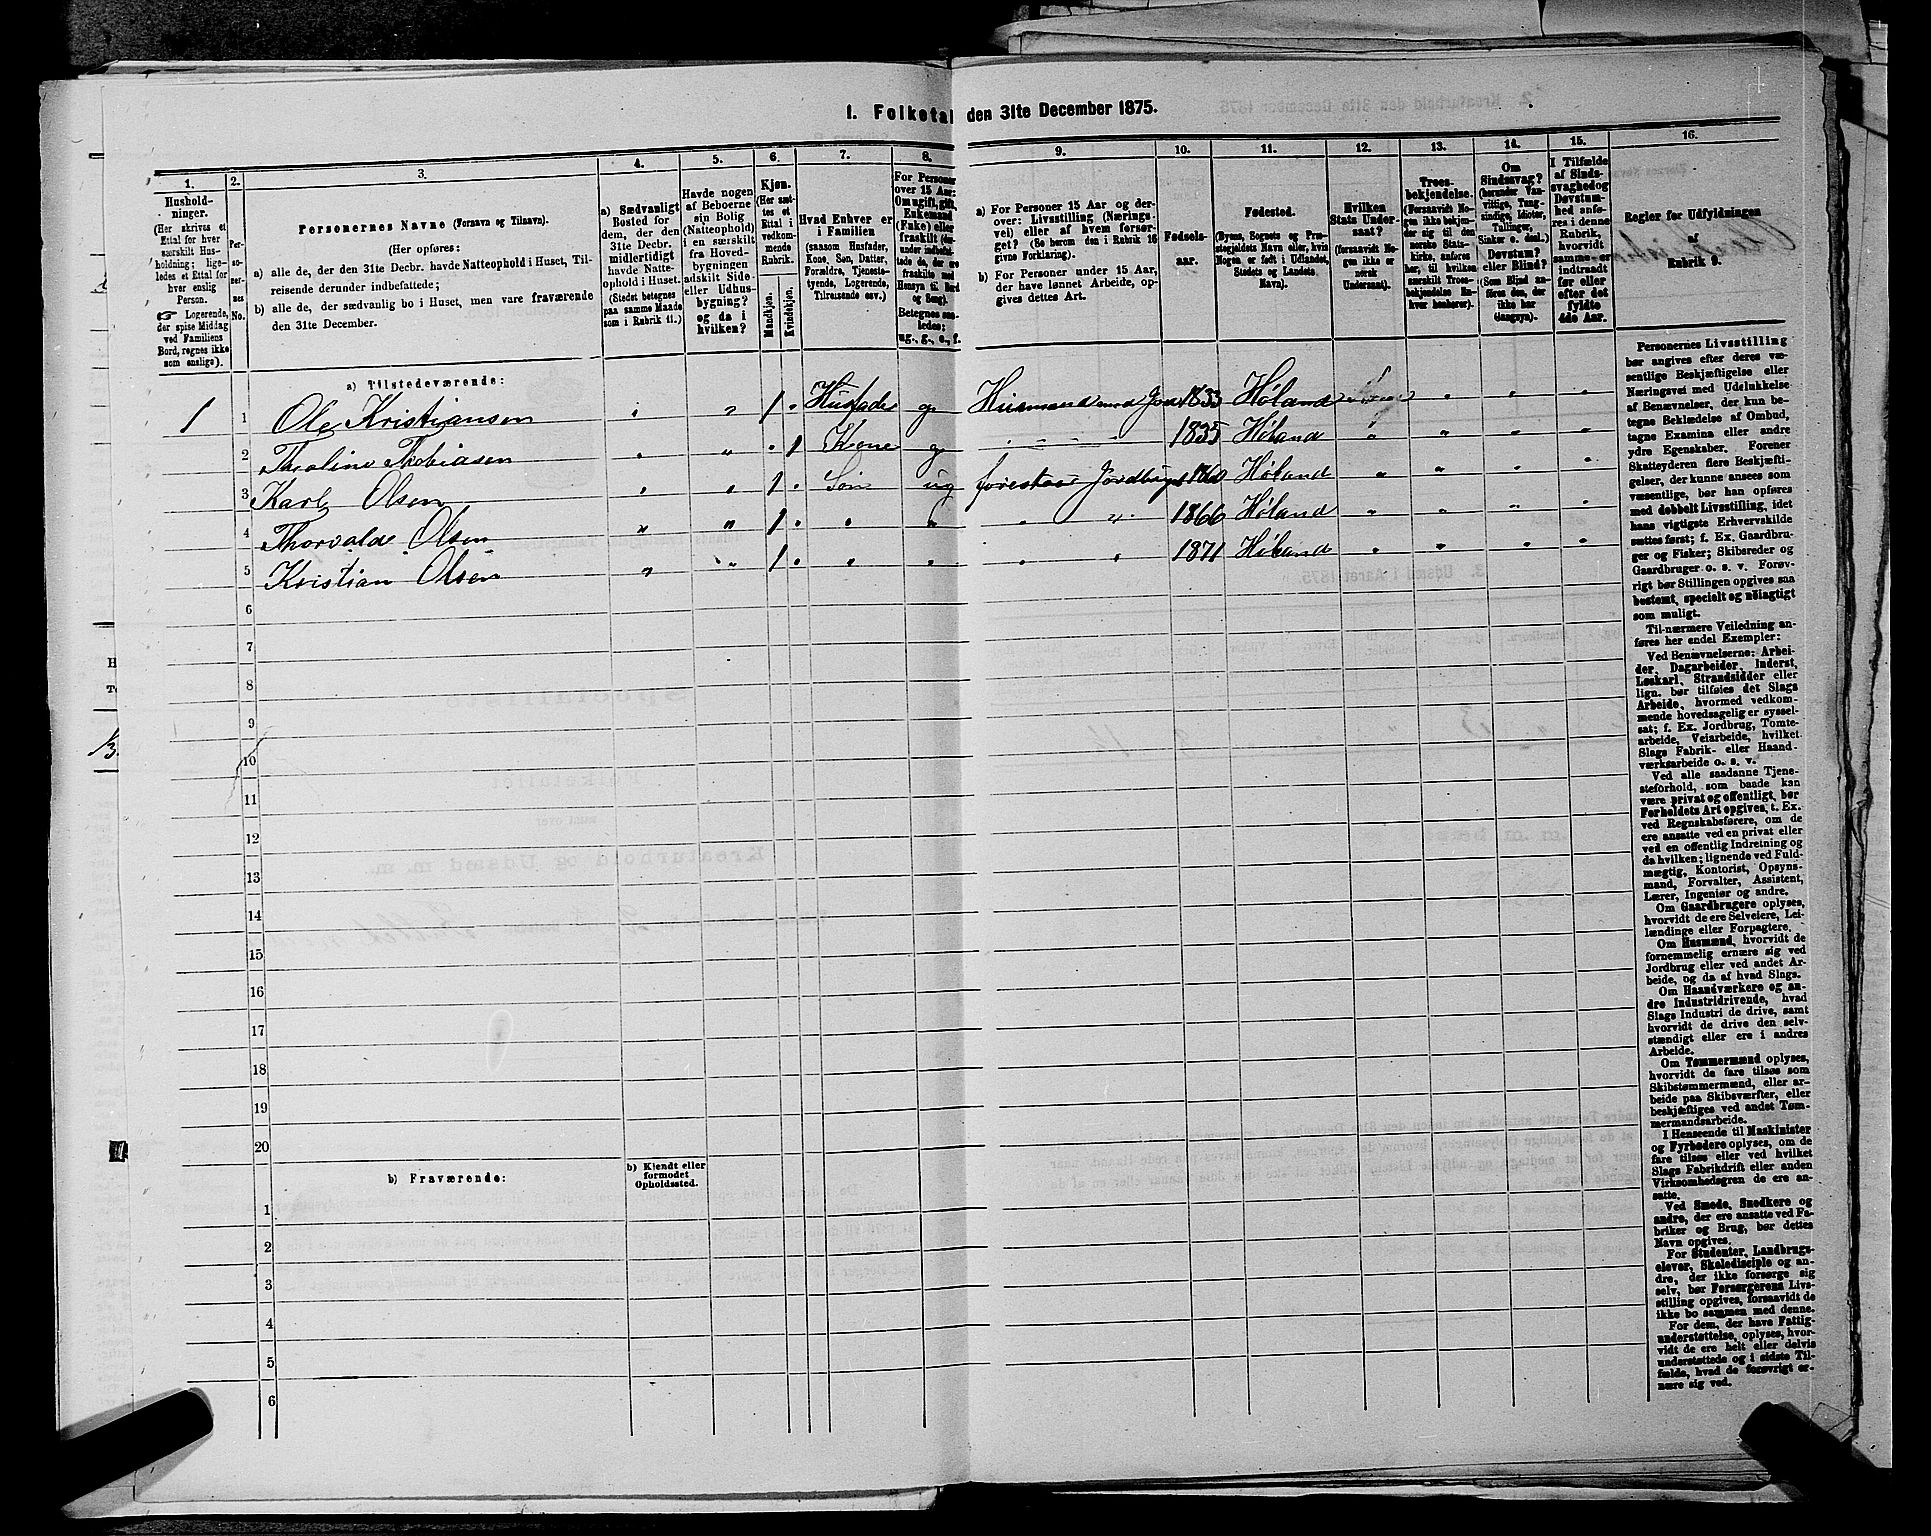 1. Folketal den 31te December 1875.
1.
Hushold-
ninger.
(Her skrives et
Ettal for hver
særskilt Hus-
holdning; lige-
ledes et Ettal for
hver enslig
Person.
☞ Logerende,
der spise Middag
ved Familiens
Bord, regnes ikke
som enslige).
2.
Per-
so-
ner-
nes
No.
3.
Personernes Navne (Fornavn og Tilnavn).
(Her opføres:
a) alle de, der den 31te Decbr. havde Natteophold i Huset, Til-
reisende derunder indbefattede;
b) alle de, der sædvanlig bo i Huset, men vare fraværende
den 31te December.
4.
a) Sædvanligt
Bosted for
dem, der den
31te Decbr.
midlertidigt
havde Natte-
ophold i Huset.
(Stedet betegnes
paa samme Maade
som i Rubrik 11.)
5.
Havde nogen
af Beboerne
sin Bolig
(Natteophold)
i en særskilt
fra Hoved-
bygningen
adskilt Side-
eller Udhus-
bygning?
og da i
hvilken?
6.
Kjøn.
(Her sæt-
tes et
Ettal i
vedkom-
mende
Rubrik.
Mandkjøn.
Kvindekjøn.
7.
Hvad Enhver er
i Familien
(saasom Husfader,
Kone, Søn, Datter,
Forældre, Tjeneste-
tyende, Logerende,
Tilreisende osv.)
8.
For Personer
over 15 Aar:
Om ugift, gift,
Enkemand
(Enke) eller
fraskilt
Betegnes saa-
ledes:
ug., g., e., f.
9.
a) For Personer 15 Aar og der-
over: Livsstilling (Nærings-
vei) eller af hvem forsør-
get? (Se herom den i Rubrik 16
givne Forklaring).
b) For Personer under 15 Aar,
der have lønnet Arbeide, op-
gives dettes Art.
10.
Fødsels-
aar.
11.
Fødested.
(Byens, Sognets og Præ-
stegjeldets Navn eller, hvis
Nogen er født i Udlandet,
Stedets og Landets
Navn).
12.
Hvilken
Stats Under-
saat?
(forsaavidt No-
gen ikke er
norsk
Undersaat).
13.
Troes-
bekjendelse.
(Forsaavidt No-
gen ikke bekjen-
der sig til den
norske Stats-
kirke, anføres
her, til hvilken
særskilt Troes-
bekjendelse En-
hver henhører).
14.
Om
Sindssvag?
(herunder Van-
vittige, Tung-
sindige, Idioter,
Tullinger,
Sinker o. desl.)
Døvstum?
eller Blind?
(Som Blind an-
føres den, der
ikke har
Gangsyn).
15.
I Tilfælde
af Sinds-
svaghed og
Døvstum-
hed anfø-
res i denne
Rubrik,
hvorvidt
samme er
indtraadt
før eller
efter det
fyldte
4de Aar.
16.
Regler for Udfyldningen
af
Rubrik 9.
a) Tilstedeværende:
1 1 Ole Kristiansen " " 1 " Husfader g Husmand med Jord 1833 Høland " " "
2 Tobiasen " " " 1 Kone g " 1835 Høland " " " "
3 Karl Olsen " " 1 " Søn ug Høland " " " "
4 Thorvald Olsen " " 1 " " " " " 1866 Høland " " " "
5 Kristian Olsen " " 1 " " " " " 1871 Høland " " " "
6
7
8
9
10
11
12
13
14
15
16
17
18
19
20
b) Fraværende:
b) Kjendt eller
formodet
Opholdssted.
1
2
3
4
5
6
Personernes Livsstilling
bør angives efter deres væ-
sentlige Beskjæftigelse eller
Næringsvei med Udelukkelse
af Benævnelser, der kun be-
tegne Beklædelse af Ombud,
tagne Examina eller andre
ydre Egenskaber. Forener
Skatteyderen flere Beskjæfti-
gelser, der kunne ansees som
væsentlige, bør han opføres
med dobbelt Livsstilling, idet
hans vigtigste Erhvervskilde
sættes først; f. Ex. Gaardbru-
ger og Fisker; Skibsreder og
Gaardbruger o. s. v. Forøv-
rigt bør Stillingen opgives saa
bestemt, specielt og nøiagtigt
som muligt.
Til nærmere Veiledning an-
føres her endel Exempler:
Ved Benævnelserne: Arbei-
der, Dagarbeider, Inderst,
Løskarl, Strandsidder eller
lign. bør tilføies det Slags
Arbeide, hvormed vedkom-
mende hovedsagelig er syssel-
sat; f. Ex. Jordbrug, Tomte-
arbeide, Veiarbeide, hvilket
Slags Fabrik- eller Haand-
værksarbeide o. s. v.
Ved alle saadanne Tjene-
steforhold, som baade kan
være privat og offentligt, bør
Forholdets Art opgives, t. Ex.
ved Regnskabsførere, om de
ere ansatte ved en privat eller
ved en offentlig Indretning og
da hvilken; lignende ved Fuld-
mægtig, Kontorist, Opsyns-
mand, Forvalter, Assistent,
Lærer, Ingeniør og andre.
Om Gaardbrugere oplyses,
hvorvidt de ere Selveiere, Lei-
lændinge eller Forpagtere.
Om Husmænd, hvorvidt de
fornemmelig ernære sig ved
Jordbrug eller ved andet Ar-
beide, og da af hvad Slags.
Om Haandværkere og an-
dre Industridrivende, hvad
Slags Industri de drive, samt
hvorvidt de drive den selv-
stændigt eller ere i andres
Arbeide.
Om Tømmermænd oplyses,
hvorvidt de fare tilsøs som
Skibstømmermænd, eller ar-
beide paa Skibsværfter, eller
beskjæftiges ved andet Tøm-
mermandsarbeide.
I Henseende til Maskinister
og Fyrbødere oplyses, om de
fare tilsøs eller ved hvilket
Slags Fabrikdrift eller anden
Virksomhedsgren de ere an-
satte.
Ved Smede, Snedkere og
andre, der ere ansatte ved Fa-
briker og Brug, bør dettes
Navn opgives.
For Studenter, Landbrugs-
elever, Skoledisciple og an-
dre, der ikke forsørge sig
selv, bør Forsørgerens Livs-
stilling opgives, forsaavidt de
ikke bo sammen med denne.
For dem, der have Fattig-
understøttelse, oplyses, hvor-
vidt de ere helt eller delvis
understøttede og i sidste Til-
fælde, hvad de forøvrigt er-
nære sig ved.